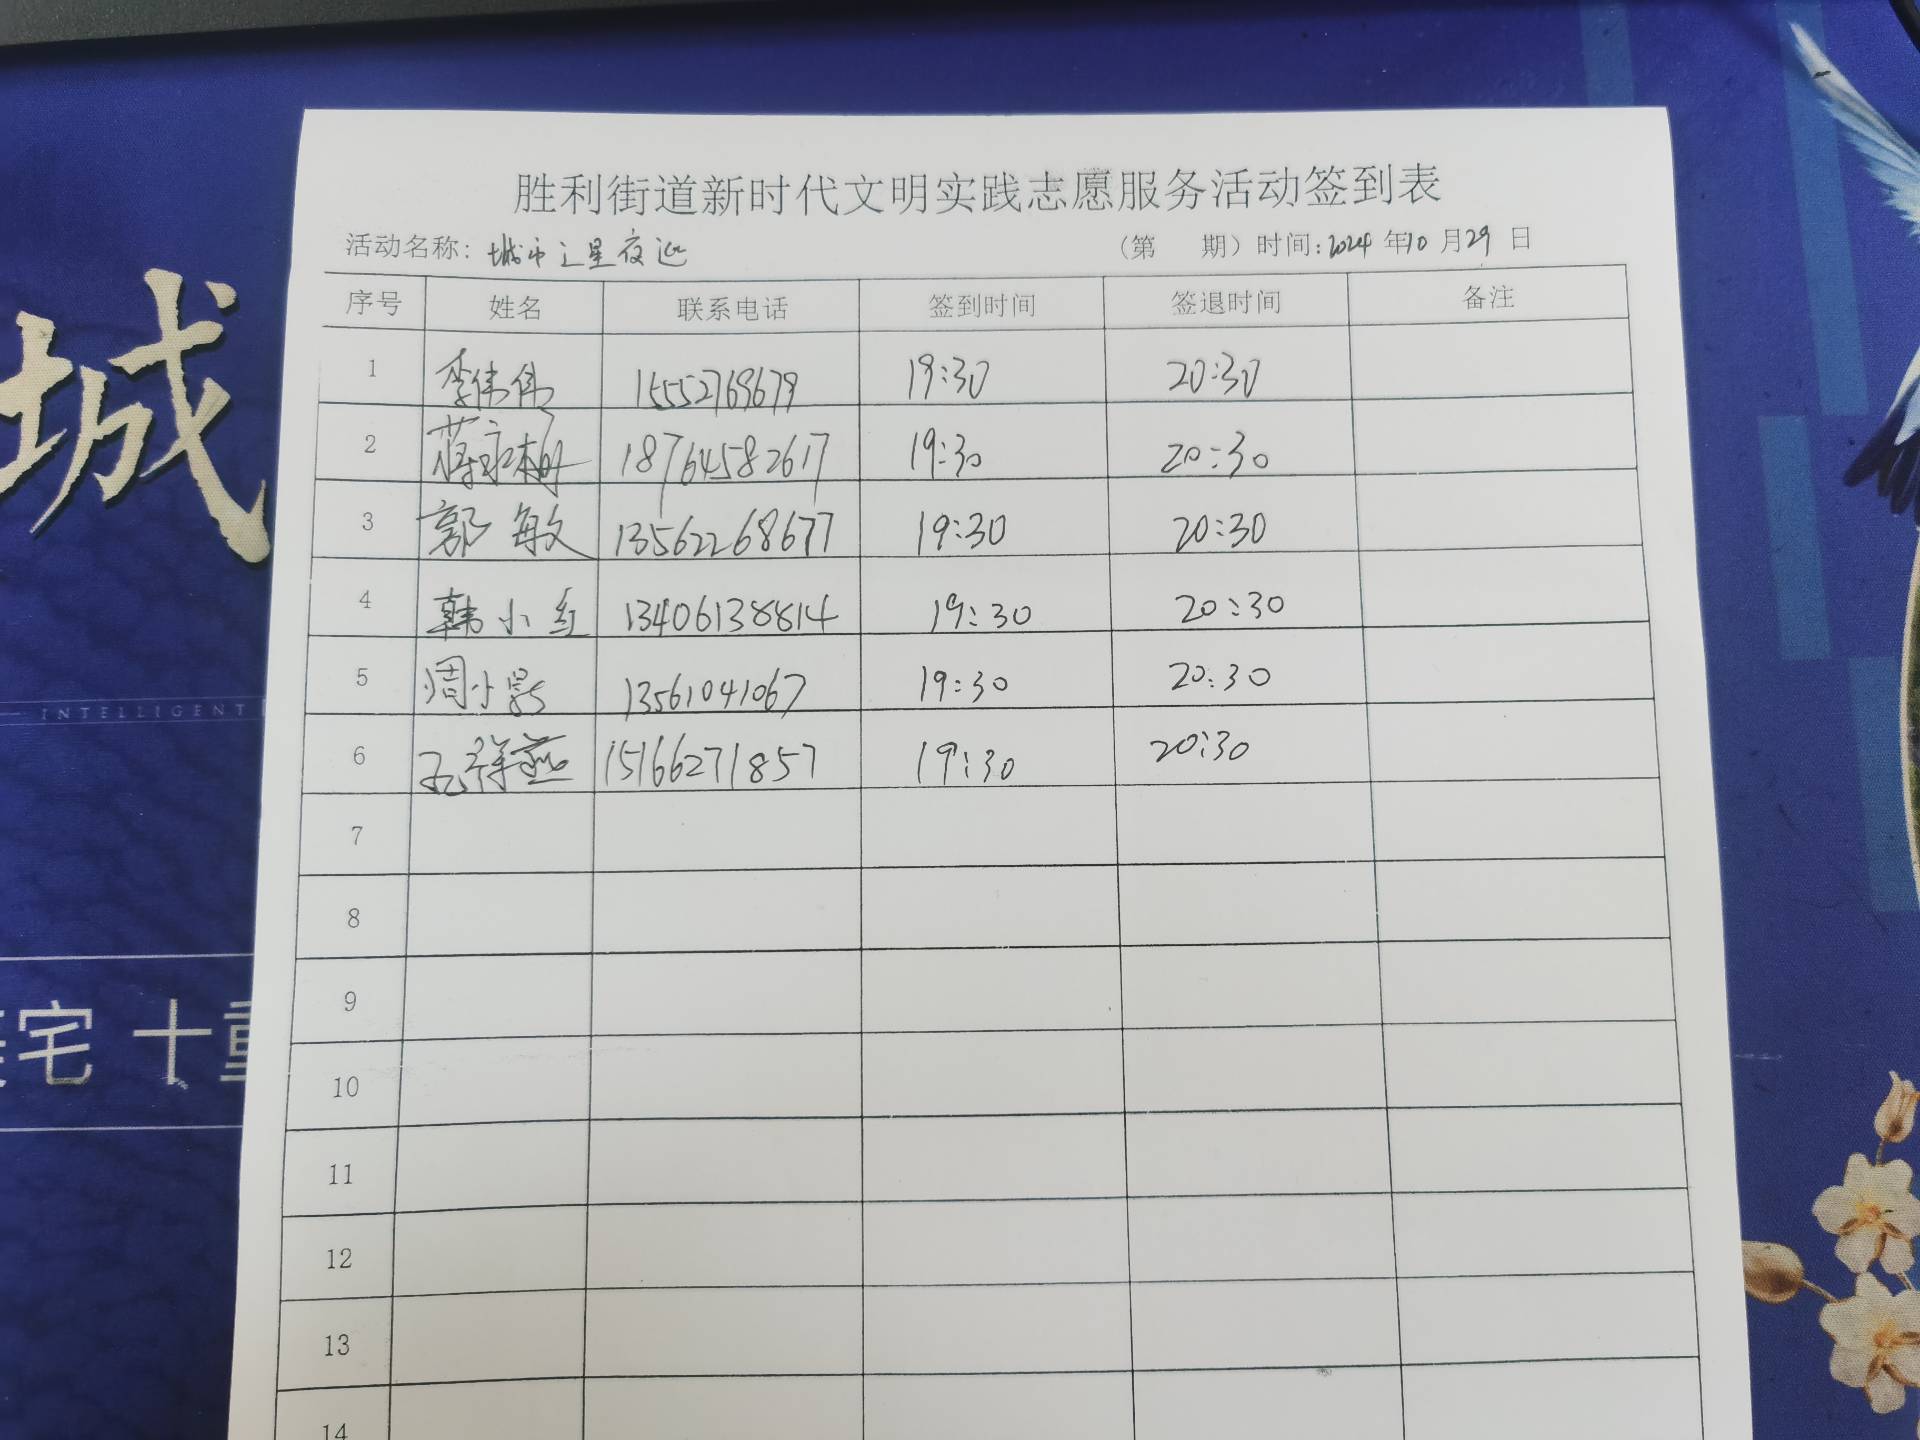 胜利街道新时代文明实践志愿服务活动签到表
活动名称: 城市之星夜巡 (第 期) 时间: 2024 年 10 月 29 日
序号 姓名 联系电话 签到时间 签退时间 备注
1 李伟伟 15552769679 19:30 20:30
2 蒋永 18764582617 19:30 20:30
3 郭敏 13562268677 19:30 20:30
4 韩小红 13406138814 19:30 20:30
5 周小 13561041067 19:30 20:30
6 孔祥燕 15166271857 19:30 20:30
7
8
9
10
11
12
13
14
城
INTELLIGENT
宅 十重